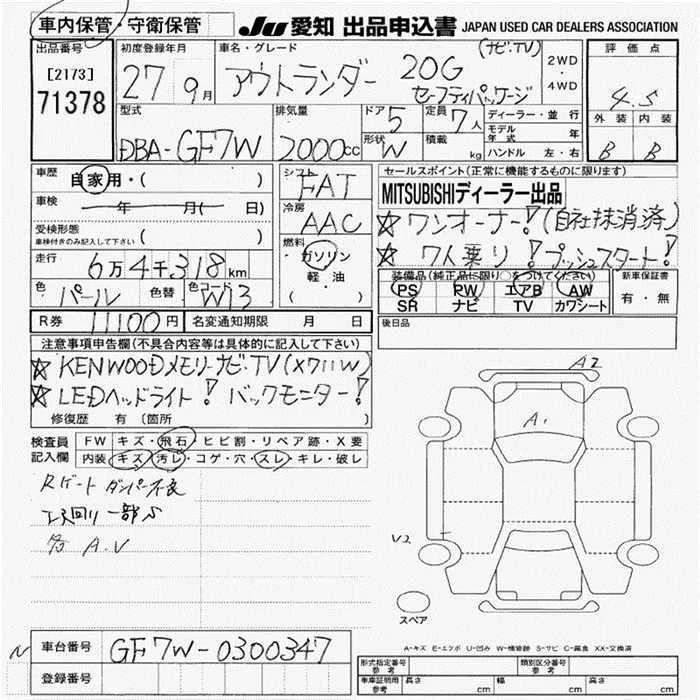 車内保管・守衛保管 JU 愛知 出品申込書 JAPAN USED CAR DEALERS ASSOCIATION
出品番号 初度登録年月 車名・グレード (ナビ・TV) 2WD・4WD 評価点
[2173] 71378 27 9月 アウトランダー 20G セーフティパッケージ 4.5
型式 排気量 ドア 5 定員 7人 ディーラー・並行 外装 内装
DBA-GF7W 2000cc 形状 W 積載 kg モデル年式 年 B B
ハンドル 左・右
車歴 自家用・( ) シフト FAT セールスポイント(正常に機能するものに限ります)
車検 年 月( 日) 冷房 AAC MITSUBISHIディーラー出品
受検形態 ( ) 燃料 ☆ワンオーナー!(自社抹消済)
車検付きのみ記入して下さい ガソリン ☆7人乗り!プッシュスタート!
走行 6万4千318km 軽・油 装備品(純正品に限り○をつけてください) 新車保証書
色 パール 色替 色コード W13 ( ) PS PW エアB AW 有・無
SR ナビ TV カワシート
R券 11100円 名変通知期限 月 日 後日品
注意事項申告欄(不具合内容等は具体的に記入して下さい)
☆KENWOODメモリーナビ・TV(X711W)
☆LEDヘッドライト! バックモニター!
修復歴 有 〔箇所
検査員 FW キズ・飛石・ヒビ割・リペア跡・X要
記入欄 内装 キズ・汚レ・コゲ・穴・スレ・キレ・破レ
Rゲート ダンパー不良
一部S
A.V
A2
A1
V2
スペア
A-キズ E-エクボ U-凹み W-補修跡 S-サビ C-腐食 XX-交換済
車台番号 GF7W-0300347
登録番号
形式指定番号 参考 類別区分番号 参考
車庫証明用 参考 長さ cm 幅 cm 高さ cm